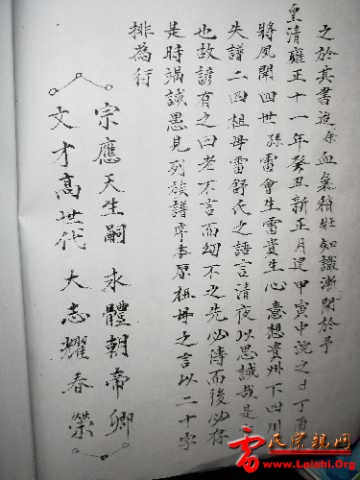 之於其書迄今血氣稍壯知識漸開於乎
皇清雍正十一年癸丑新正月建甲寅中浣之日丁酉
將風聞四世孫雷會生雷貴生心意想貴州下四川
失譜二四祖母雷舒氏之語言清夜以思誠哉是
也故諺有之曰老不言而幼不之先必傳而後必
是時竭誠愚見列族譜序本原祖母之言以二十字
排為行
宗應天生嗣 永體朝帝卿
文才高世代 大志耀春榮
雷氏宗親网
www.Leishi.Org